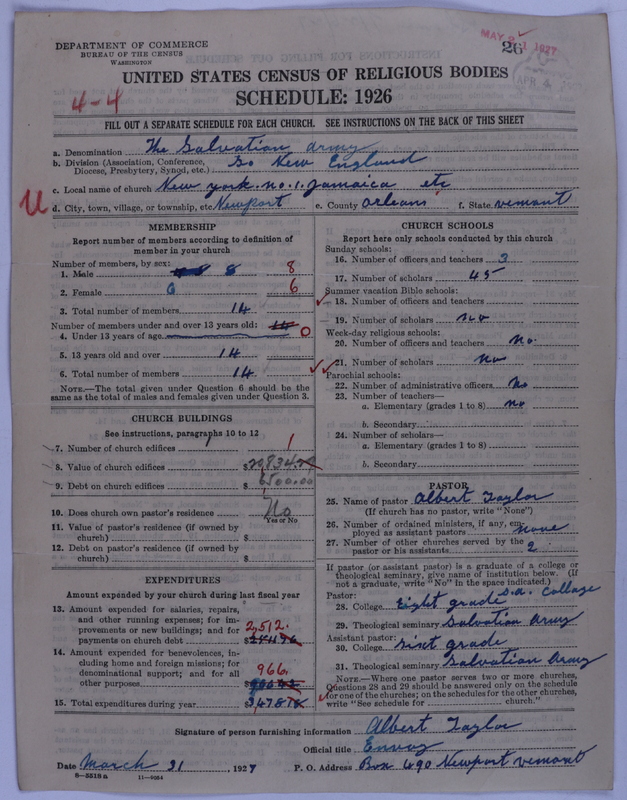 DEPARTMENT OF COMMERCE
BUREAU OF THE CENSUS
WASHINGTON
26
MAY 2 1 1927
APR 4
UNITED STATES CENSUS OF RELIGIOUS BODIES
4-4
SCHEDULE: 1926
FILL OUT A SEPARATE SCHEDULE FOR EACH CHURCH. SEE INSTRUCTIONS ON THE BACK OF THIS SHEET
a. Denomination The Salvation army
b. Division (Association, Conference, Diocese, Presbytery, Synod, etc.) So New England
c. Local name of church New york. no. 1. Jamaica etc
U d. City, town, village, or township, etc. Newport e. County Orleans f. State vemont
MEMBERSHIP
Report number of members according to definition of
member in your church
Number of members, by sex:
1. Male 8 8
2. Female 6 6
3. Total number of members 14
Number of members under and over 13 years old: 14
4. Under 13 years of age 0
5. 13 years old and over 14
6. Total number of members 14
NOTE.—The total given under Question 6 should be the
same as the total of males and females given under Question 3.
CHURCH BUILDINGS
See instructions, paragraphs 10 to 12
7. Number of church edifices 1
8. Value of church edifices $
9. Debt on church edifices $ 6500.00
10. Does church own pastor's residence No
Yes or No
11. Value of pastor's residence (if owned by
church) $
12. Debt on pastor's residence (if owned by
church) $
EXPENDITURES
Amount expended by your church during last fiscal year
13. Amount expended for salaries, repairs,
and other running expenses; for im-
provements or new buildings; and for
payments on church debt $ 2,512.
14. Amount expended for benevolences, in-
cluding home and foreign missions; for
denominational support; and for all
other purposes $ 966.
15. Total expenditures during year $ 3478
CHURCH SCHOOLS
Report here only schools conducted by this church
Sunday schools:
16. Number of officers and teachers 3
17. Number of scholars 45
Summer vacation Bible schools:
18. Number of officers and teachers
19. Number of scholars no
Week-day religious schools:
20. Number of officers and teachers No.
21. Number of scholars No
Parochial schools:
22. Number of administrative officers No
23. Number of teachers—
a. Elementary (grades 1 to 8) no
b. Secondary
24. Number of scholars—
a. Elementary (grades 1 to 8)
b. Secondary
PASTOR
25. Name of pastor Albert Taylor
(If church has no pastor, write "None")
26. Number of ordained ministers, if any, em-
ployed as assistant pastors none
27. Number of other churches served by the
pastor or his assistants 2
If pastor (or assistant pastor) is a graduate of a college or
theological seminary, give name of institution below. (If
not a graduate, write "No" in the space indicated.)
Pastor:
28. College Eight grade S.a. Collage
29. Theological seminary Salvation Army
Assistant pastor:
30. College Sixt grade
31. Theological seminary Salvation Army
NOTE.—Where one pastor serves two or more churches,
Questions 28 and 29 should be answered only on the schedule
for one of the churches; on the schedules for the other churches,
write "See schedule for church."
Signature of person furnishing information Albert Taylor
Official title Envoy
Date March 31, 1927 P. O. Address Box 490 Newport vemont
8—5518a 11—9054